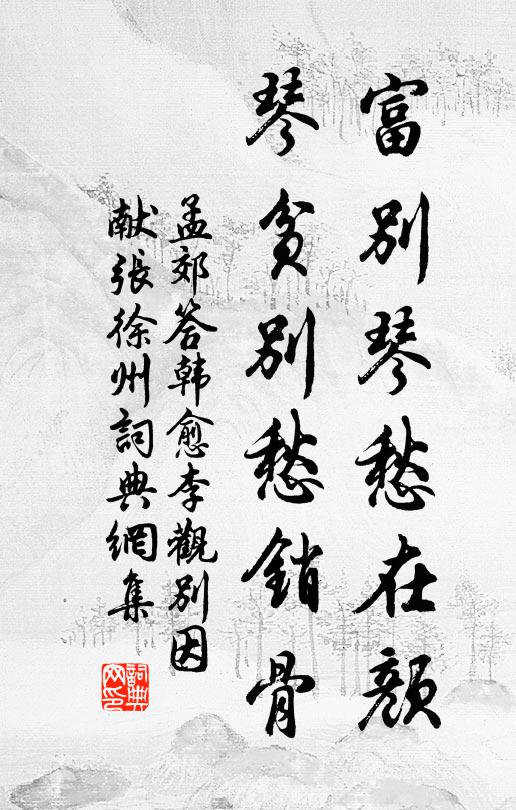 富别琴愁在颜
琴貧别愁銷骨
孟郊答韩愈李觀别因
献張徐州詞典網集
詞典网印